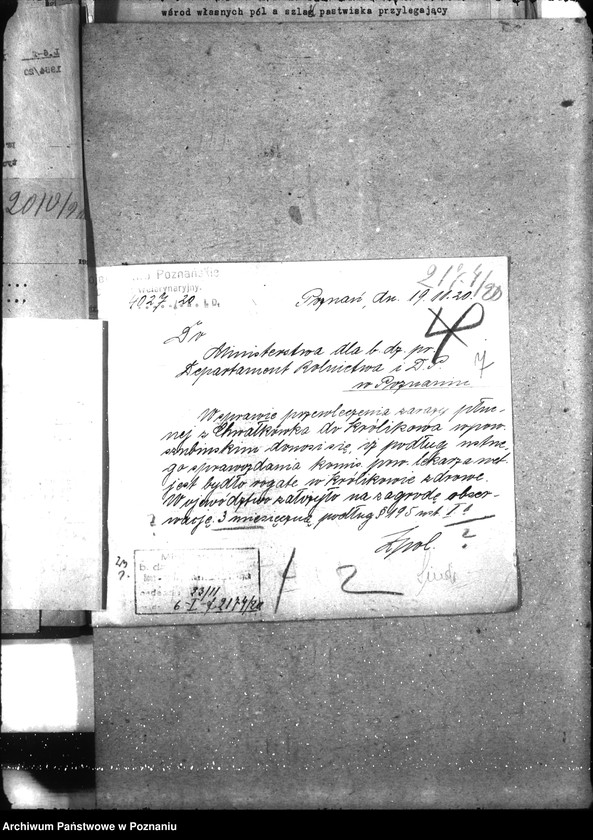 wśrod własnych pól a szlag pastwiska przylegający
2010/20
Poznańskie
4027 20
2174/20
Poznań, dn. 19.11.20.
4
7
Do
Ministerstwa dla b. dz. pr.
Departament Rolnictwa i D. P.
w Poznaniu
W sprawie przewleczenia zarazy płuc-
nej z Chwałkówka do Królikowa w pow.
szubińskim donosi się, iż podług ustne-
go sprawozdania komis. pow. lekarza wet.
jest bydło rogate w Królikowie zdrowe.
Województwo założyło na zagrodę obser-
wację 3 miesięczną podług § 195 ust I!
?
Z pol.
?
23/11
6 I f 2174/20
2
Archiwum Państwowe w Poznaniu